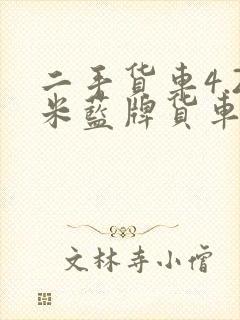 二手货车4.2
米蓝牌货车
文林寺小僧